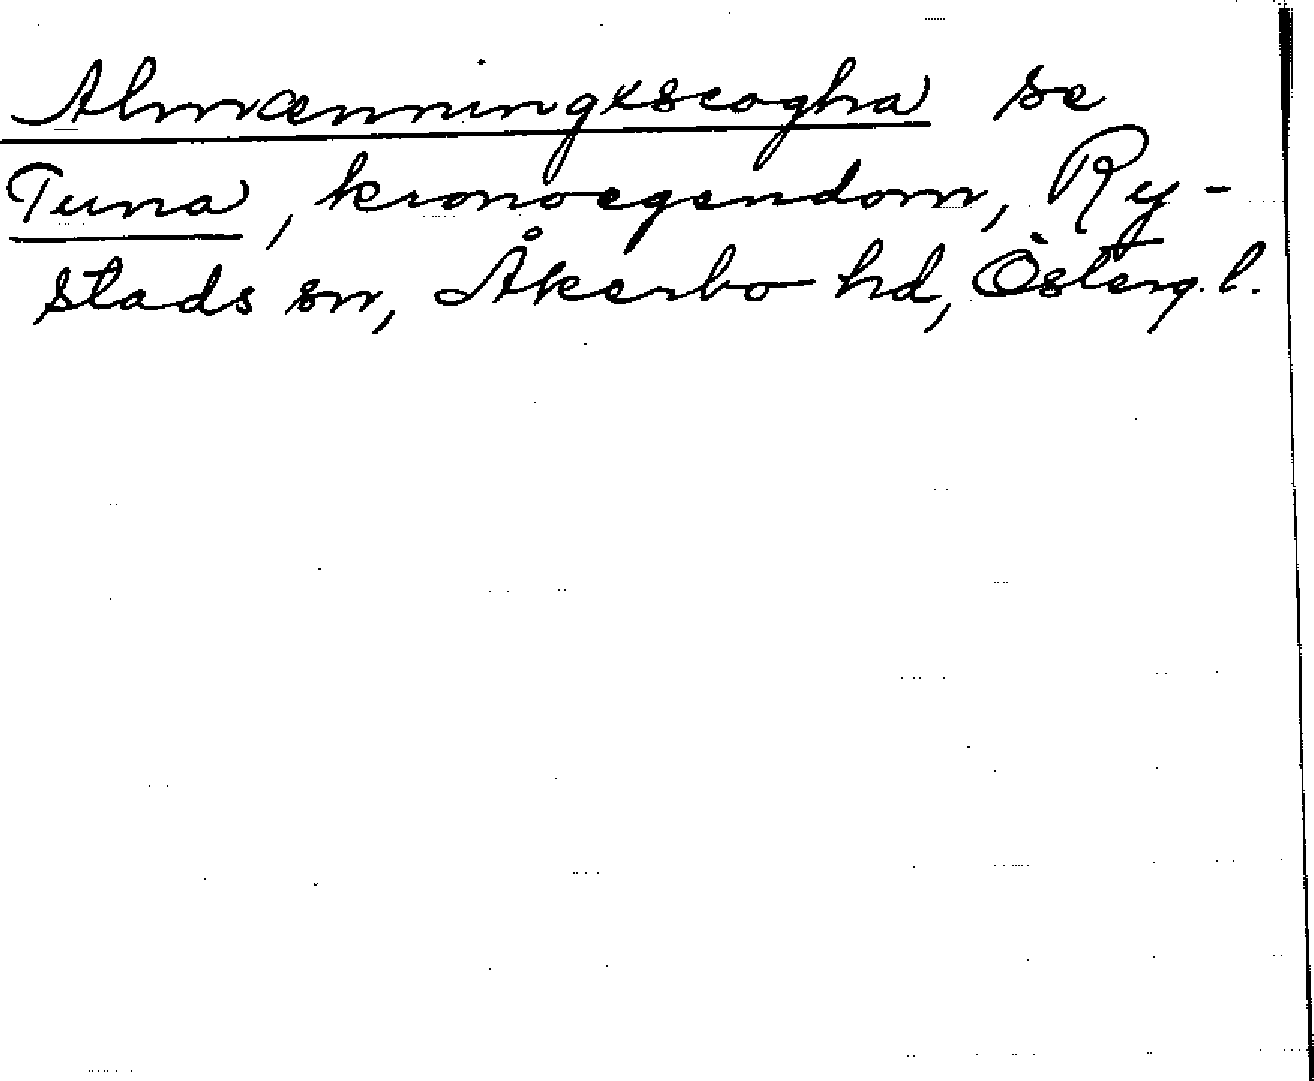 Almænningxscogha se
Tuna, kronoegendom, Ry-
stads sn, Åkerbo hd, Österg. l.